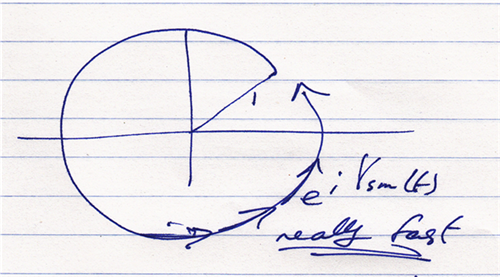 1
e i V sm (t)
really fast